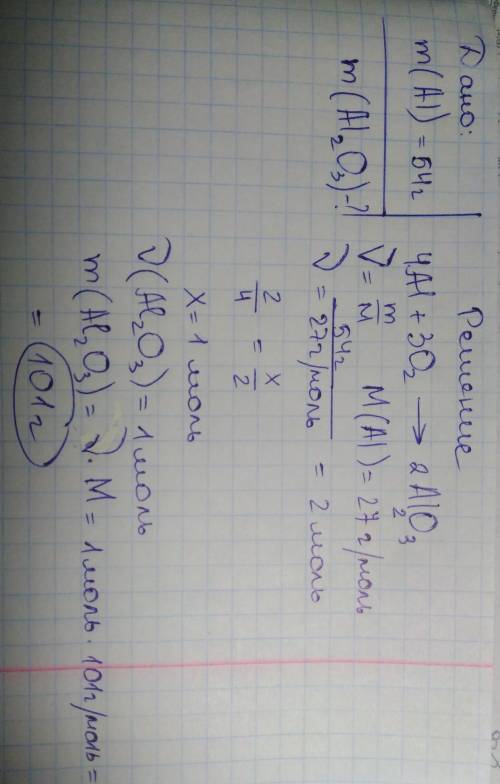 Дано:
m(Al) = 54г
m(Al₂O₃)-?
Решение
4Al + 3O₂ → 2Al₂O₃
ν = m/M M(Al) = 27г/моль
ν = 54г/27г/моль = 2моль
2/4 = x/2
x = 1 моль
ν(Al₂O₃) = 1моль
m(Al₂O₃) = ν · M = 1моль · 101г/моль =
= 101г